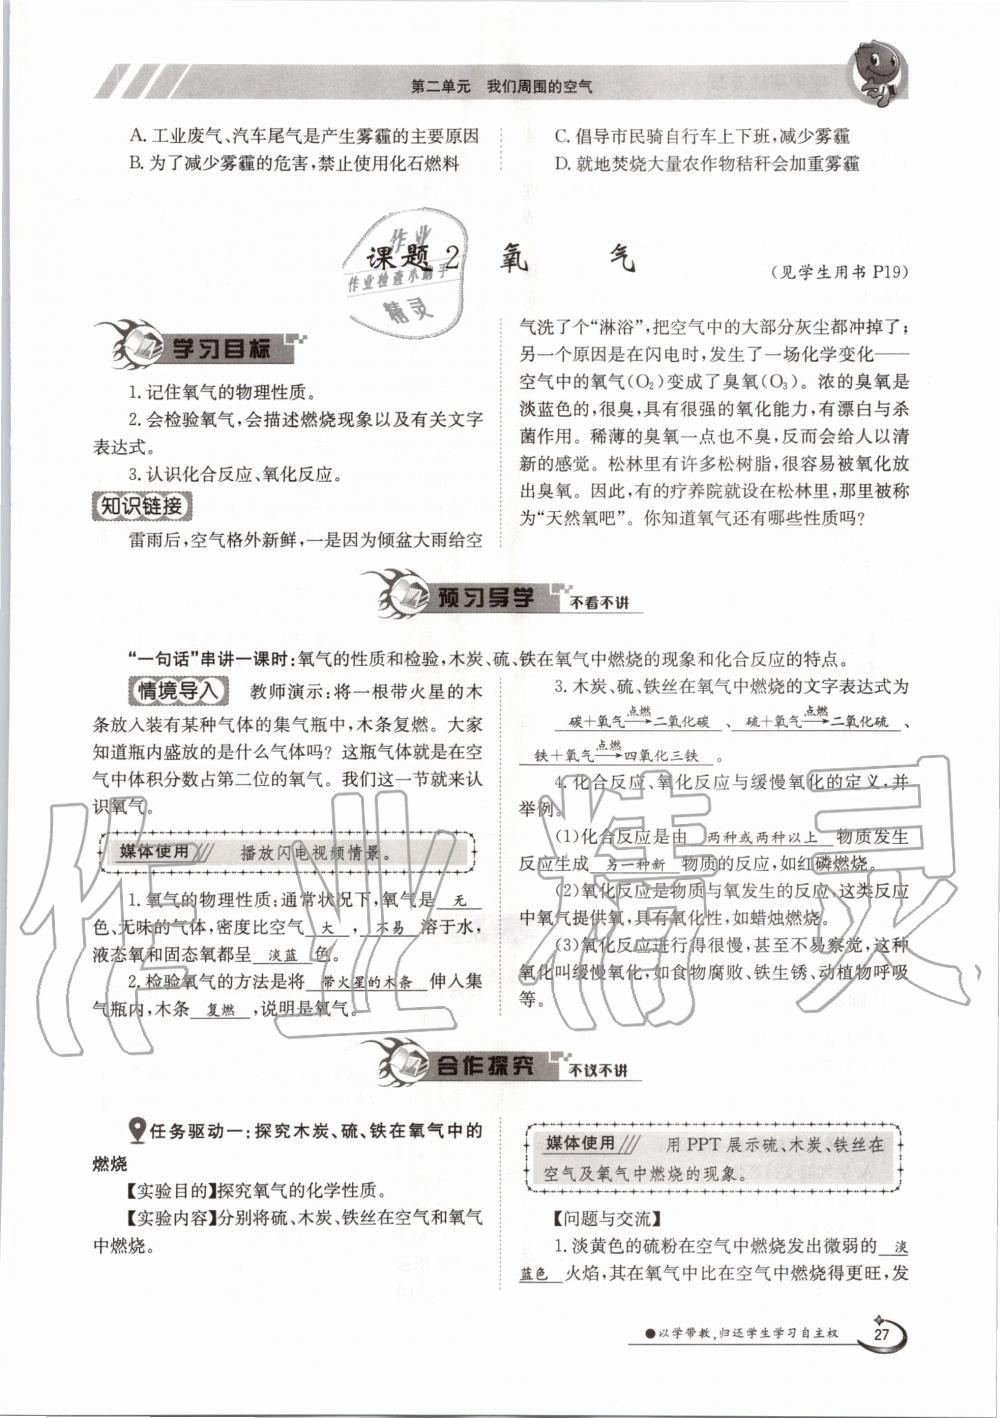 第二单元　我们周围的空气
A. 工业废气、汽车尾气是产生雾霾的主要原因
B. 为了减少雾霾的危害,禁止使用化石燃料
C. 倡导市民骑自行车上下班,减少雾霾
D. 就地焚烧大量农作物秸秆会加重雾霾
课题2　氧　气
(见学生用书 P19)
作业
作业检查小助手
精灵
学习目标
1. 记住氧气的物理性质。
2. 会检验氧气,会描述燃烧现象以及有关文字
表达式。
3. 认识化合反应、氧化反应。
知识链接
雷雨后,空气格外新鲜,一是因为倾盆大雨给空
气洗了个“淋浴”,把空气中的大部分灰尘都冲掉了;
另一个原因是在闪电时,发生了一场化学变化——
空气中的氧气(O₂)变成了臭氧(O₃)。浓的臭氧是
淡蓝色的,很臭,具有很强的氧化能力,有漂白与杀
菌作用。稀薄的臭氧一点也不臭,反而会给人以清
新的感觉。松林里有许多松树脂,很容易被氧化放
出臭氧。因此,有的疗养院就设在松林里,那里被称
为“天然氧吧”。你知道氧气还有哪些性质吗?
预习导学　不看不讲
“一句话”串讲一课时:氧气的性质和检验,木炭、硫、铁在氧气中燃烧的现象和化合反应的特点。
情境导入　教师演示:将一根带火星的木
条放入装有某种气体的集气瓶中,木条复燃。大家
知道瓶内盛放的是什么气体吗?这瓶气体就是在空
气中体积分数占第二位的氧气。我们这一节就来认
识氧气。
媒体使用　播放闪电视频情景。
1. 氧气的物理性质:通常状况下,氧气是 无
色、无味的气体,密度比空气 大 , 不易 溶于水,
液态氧和固态氧都呈 淡蓝 色。
2. 检验氧气的方法是将 带火星的木条 伸入集
气瓶内,木条 复燃 ,说明是氧气。
3. 木炭、硫、铁丝在氧气中燃烧的文字表达式为
碳+氧气 点燃→ 二氧化碳 、 硫+氧气 点燃→ 二氧化硫 、
铁+氧气 点燃→ 四氧化三铁 。
4. 化合反应、氧化反应与缓慢氧化的定义,并
举例。
(1)化合反应是由 两种或两种以上 物质发生
反应生成 另一种新 物质的反应,如红磷燃烧。
(2)氧化反应是物质与氧发生的反应,这类反应
中氧气提供氧,具有氧化性,如蜡烛燃烧。
(3)氧化反应进行得很慢,甚至不易察觉,这种
氧化叫缓慢氧化,如食物腐败、铁生锈、动植物呼吸
等。
作业精灵
合作探究　不议不讲
任务驱动一:探究木炭、硫、铁在氧气中的
燃烧
【实验目的】探究氧气的化学性质。
【实验内容】分别将硫、木炭、铁丝在空气和氧气
中燃烧。
媒体使用　用 PPT 展示硫、木炭、铁丝在
空气及氧气中燃烧的现象。
【问题与交流】
1. 淡黄色的硫粉在空气中燃烧发出微弱的 淡
蓝色 火焰,其在氧气中比在空气中燃烧得更旺,发
●以学带教,归还学生学习自主权
27